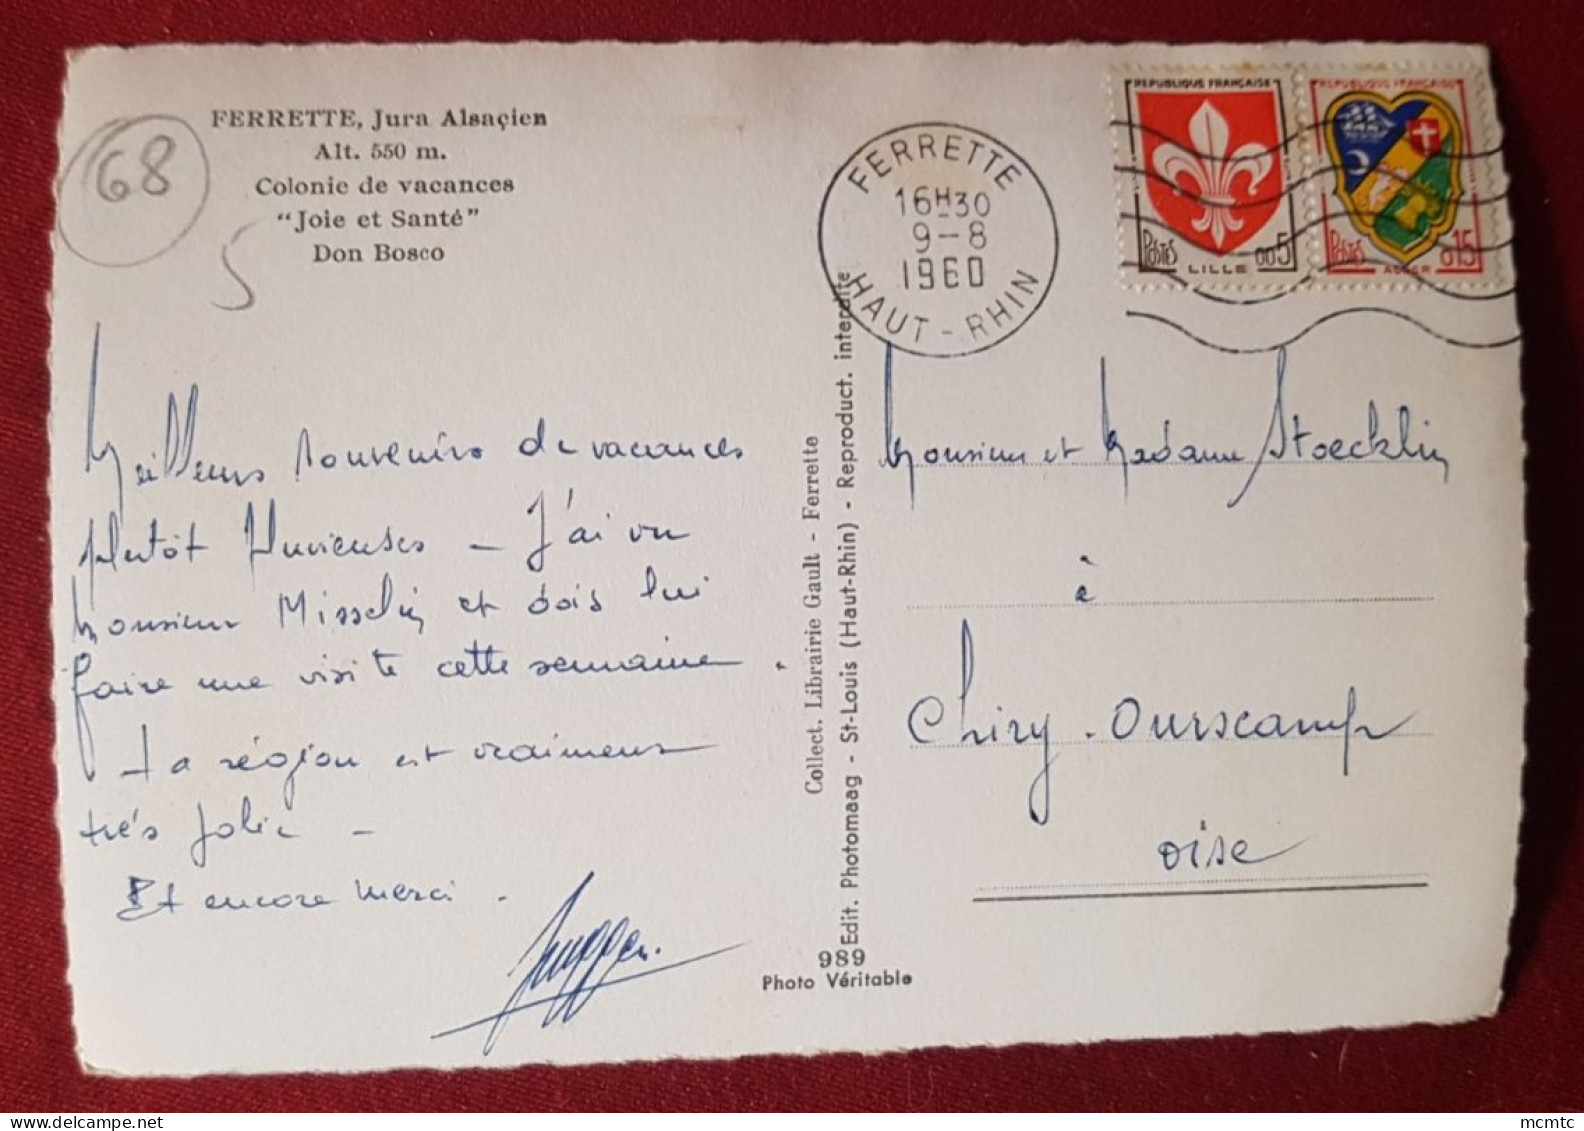 68
5
FERRETTE, Jura Alsaçien
Alt. 550 m.
Colonie de vacances
"Joie et Santé"
Don Bosco
Meilleurs souvenirs de vacances
plutôt pluvieuses – J'ai vu
Monsieur Misselin et dois lui
faire une visite cette semaine.
La région est vraiment
très jolie –
Et encore merci.
FERRETTE
16H30
9-8
1960
HAUT-RHIN
REPUBLIQUE FRANÇAISE
POSTES
0,05
LILLE
REPUBLIQUE FRANÇAISE
POSTES
0,15
ALGER
Collect. Librairie Gault - Ferrette
Edit. Photomaag - St-Louis (Haut-Rhin) - Reproduct. interdite
989
Photo Véritable
Monsieur et Madame Stoecklin
à
Chiry-Ourscamp
Oise
mcmtc